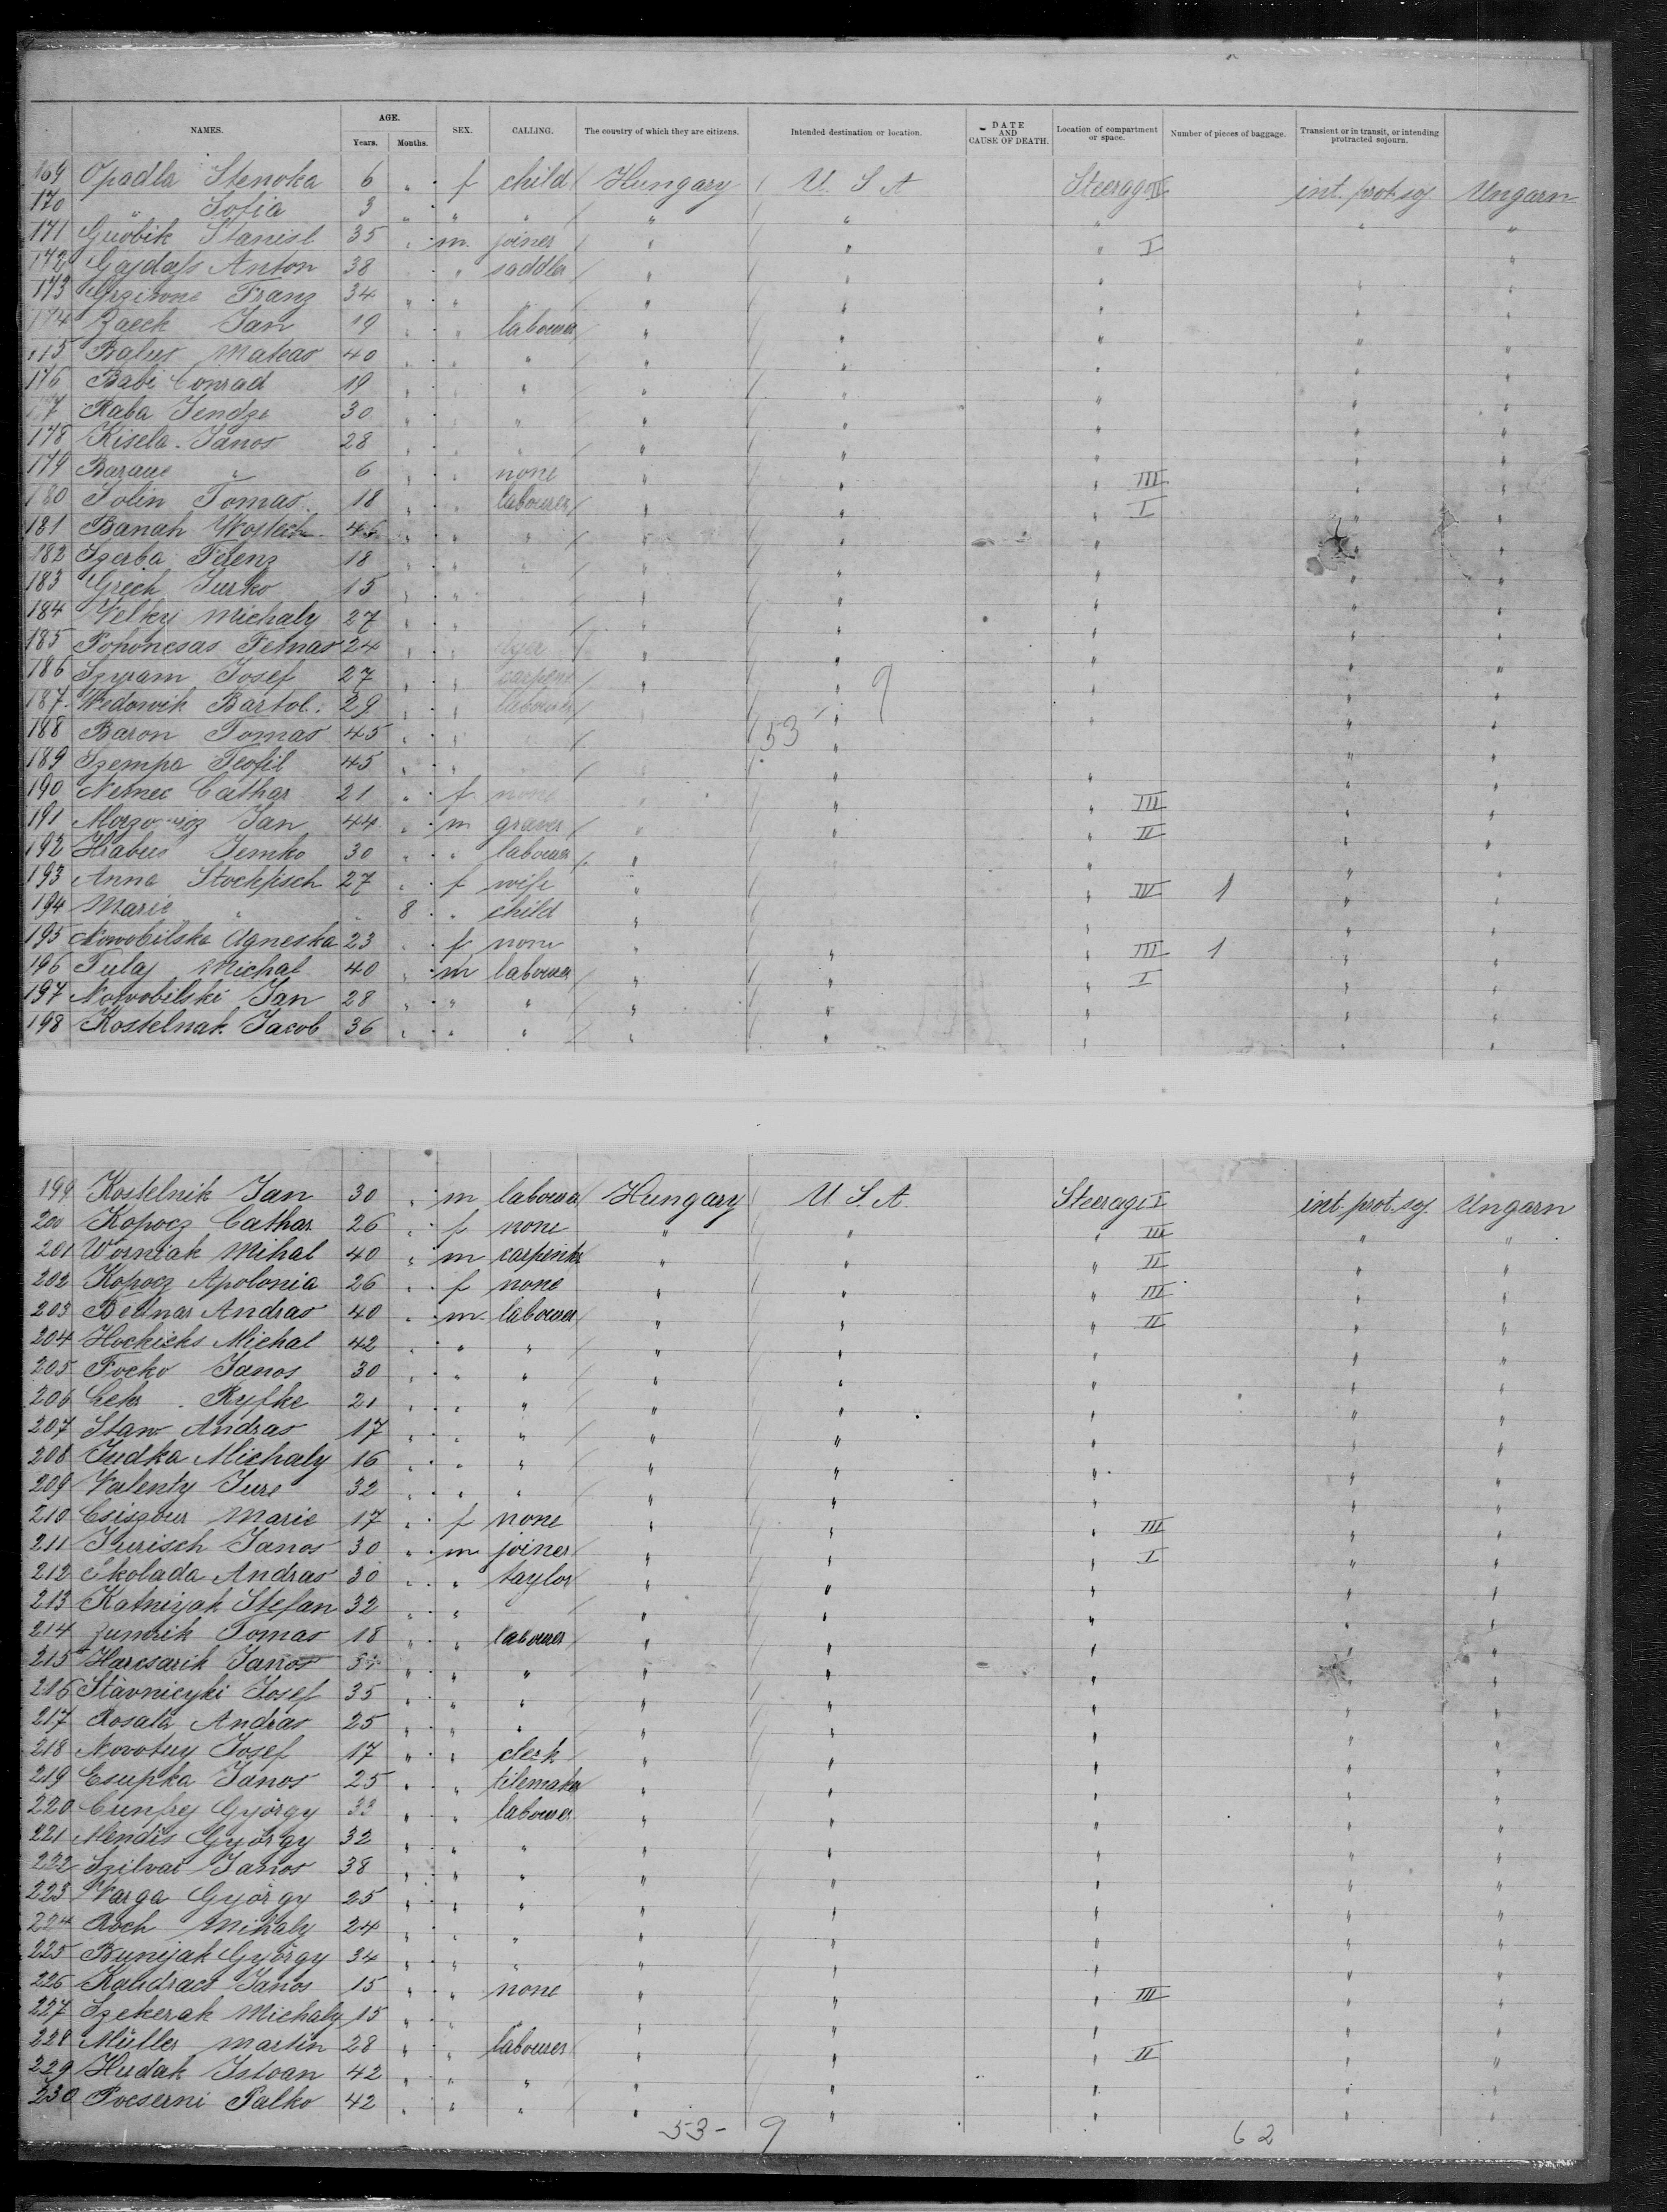 NAMES. AGE. Years. Months. SEX. CALLING. The country of which they are citizens. Intended destination or location. DATE AND CAUSE OF DEATH. Location of compartment or space. Number of pieces of baggage. Transient or in transit, or intending protracted sojourn.
169 Opadla Stenoka 6 " f child Hungary U. S. A Steerage II int. prot. soj. Ungarn
170 " Sofia 3 " " " " " " " "
171 Guobik Stanisl 35 " m. joiner " " " I "
172 Gajdaſs Anton 38 " saddler " " " " "
173 Franz 34 " " " " " " " "
174 Zaeck Jan 19 " " labourer " " " " "
175 Balus Mateas 40 " " " " " " " "
176 Babi Conrad 19 " " " " " " " "
177 Raba Jendze 30 " " " " " " " "
178 Kisela Janos 28 " " " " " " " "
179 " 6 " " none " " " III " "
180 Solin Tomas 18 " " labourer " " " I " "
181 Banah 46 " " " " " " " "
182 Szerba Felenz 18 " " " " " " " "
183 Grech Jurko 15 " " " " " " "
184 Velky Michaly 27 " " " " " " "
185 Poponcsas 24 " " " " " " "
186 Szyram Josef 27 " " carpent " " " " " 9
187. Wedowik Bartol. 29 " " labourer " " " " "
188 Baron Tomas 45 " " 53 " " "
189 Szempa Teofil 45 " " " " " "
190 Nemec Cathar 21 " f. none " " " III " "
191 Jan 44 " m graver " " " II " "
192 Hrabus Semko 30 " " labourer " " " "
193 Anna Stockfisch 27 " f wife " " IV 1 " "
194 Marie " " 8 " child " " " "
195 Nowobilska Agneska 23 " f none " " " III 1 " "
196 Tulaj Michal 40 " m labourer " " " I " "
197 Nowobilski Jan 28 " " " " " " " "
198 Kostelnak Jacob 36 " " " " " " " "
199 Kostelnik Jan 30 " m labourer Hungary U. S. A. Steerage I int. prot. soj. Ungarn
200 Kopocz Cathar. 26 " f none " " " III " "
201 Worniak Mihal 40 " m carpenter " " " II " "
202 Kopocz Apolonia 26 " f none " " " III " "
203 Bednar Andras 40 " m. labourer " " " II " "
204 Hockicks Michal 42 " " " " " " " "
205 Focko Janos 30 " " " " " " " "
206 Leks Ryfke 21 " " " " " " " "
207 Staw Andras 17 " " " " " " " "
208 Judka Michaly 16 " " " " " " " "
209 Valenty Jure 32 " " " " " " " "
210 Marie 17 " f none " " " III " "
211 Jurisch Janos 30 " m joiner " " " I " "
212 Skolada Andras 30 " " taylor " " " " "
213 Katnijak Stefan 32 " " " " " " "
214 Tomas 18 " " labourer " " " " "
215 Harcsarik Janos " " " " " " " "
216 Stavnicyki Josef 35 " " " " " " " "
217 Rosala Andras 25 " " " " " " " "
218 Novotny Josef 17 " " clerk " " " " "
219 Csupka Janos 25 " " tilemaker " " " " "
220 Cunfrej György 33 " " labourer " " " " "
221 Mendis György 32 " " " " " " " "
222 Szilvai Janos 38 " " " " " " " "
223 Varga György 25 " " " " " " " "
224 Roch Mihaly 24 " " " " " " " "
225 Bunijak György 34 " " " " " " " "
226 Janos 15 " " none " " " III " "
227 Szekerak Michaly 15 " " " " " " " "
228 Müller Martin 28 " " labourer " " " II " "
229 Hudak Istvan 42 " " " " " " " "
230 Pocserni Palko 42 " " " " " " " "
53 - 9 62